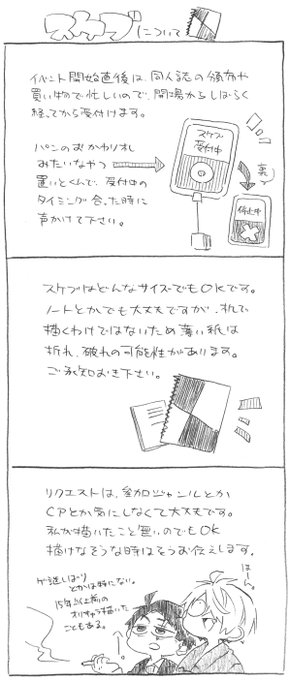 スケブについて
イベント開始直後は、同人誌の頒布や
買い物で忙しいので、開場からしばらく
経ってから受付けます。
パンのおかわりオレ
みたいなやつ
置いとくんで、受付中の
タイミング合った時に
声かけて下さい。
スケブ
受付中
裏
休止中
スケブはどんなサイズでもOKです。
ノートとかでも大丈夫ですが、机で
描くわけではないため薄い紙は
折れ、破れの可能性があります。
ご承知おき下さい。
リクエストは、参加ジャンルとか
CPとか気にしなくて大丈夫です。
私が描いたこと無いのでもOK
描けなそうな時はそうお伝えします。
とかは特にない。
15年以上前の
オリキャラ描いた
こともある。
はーん。